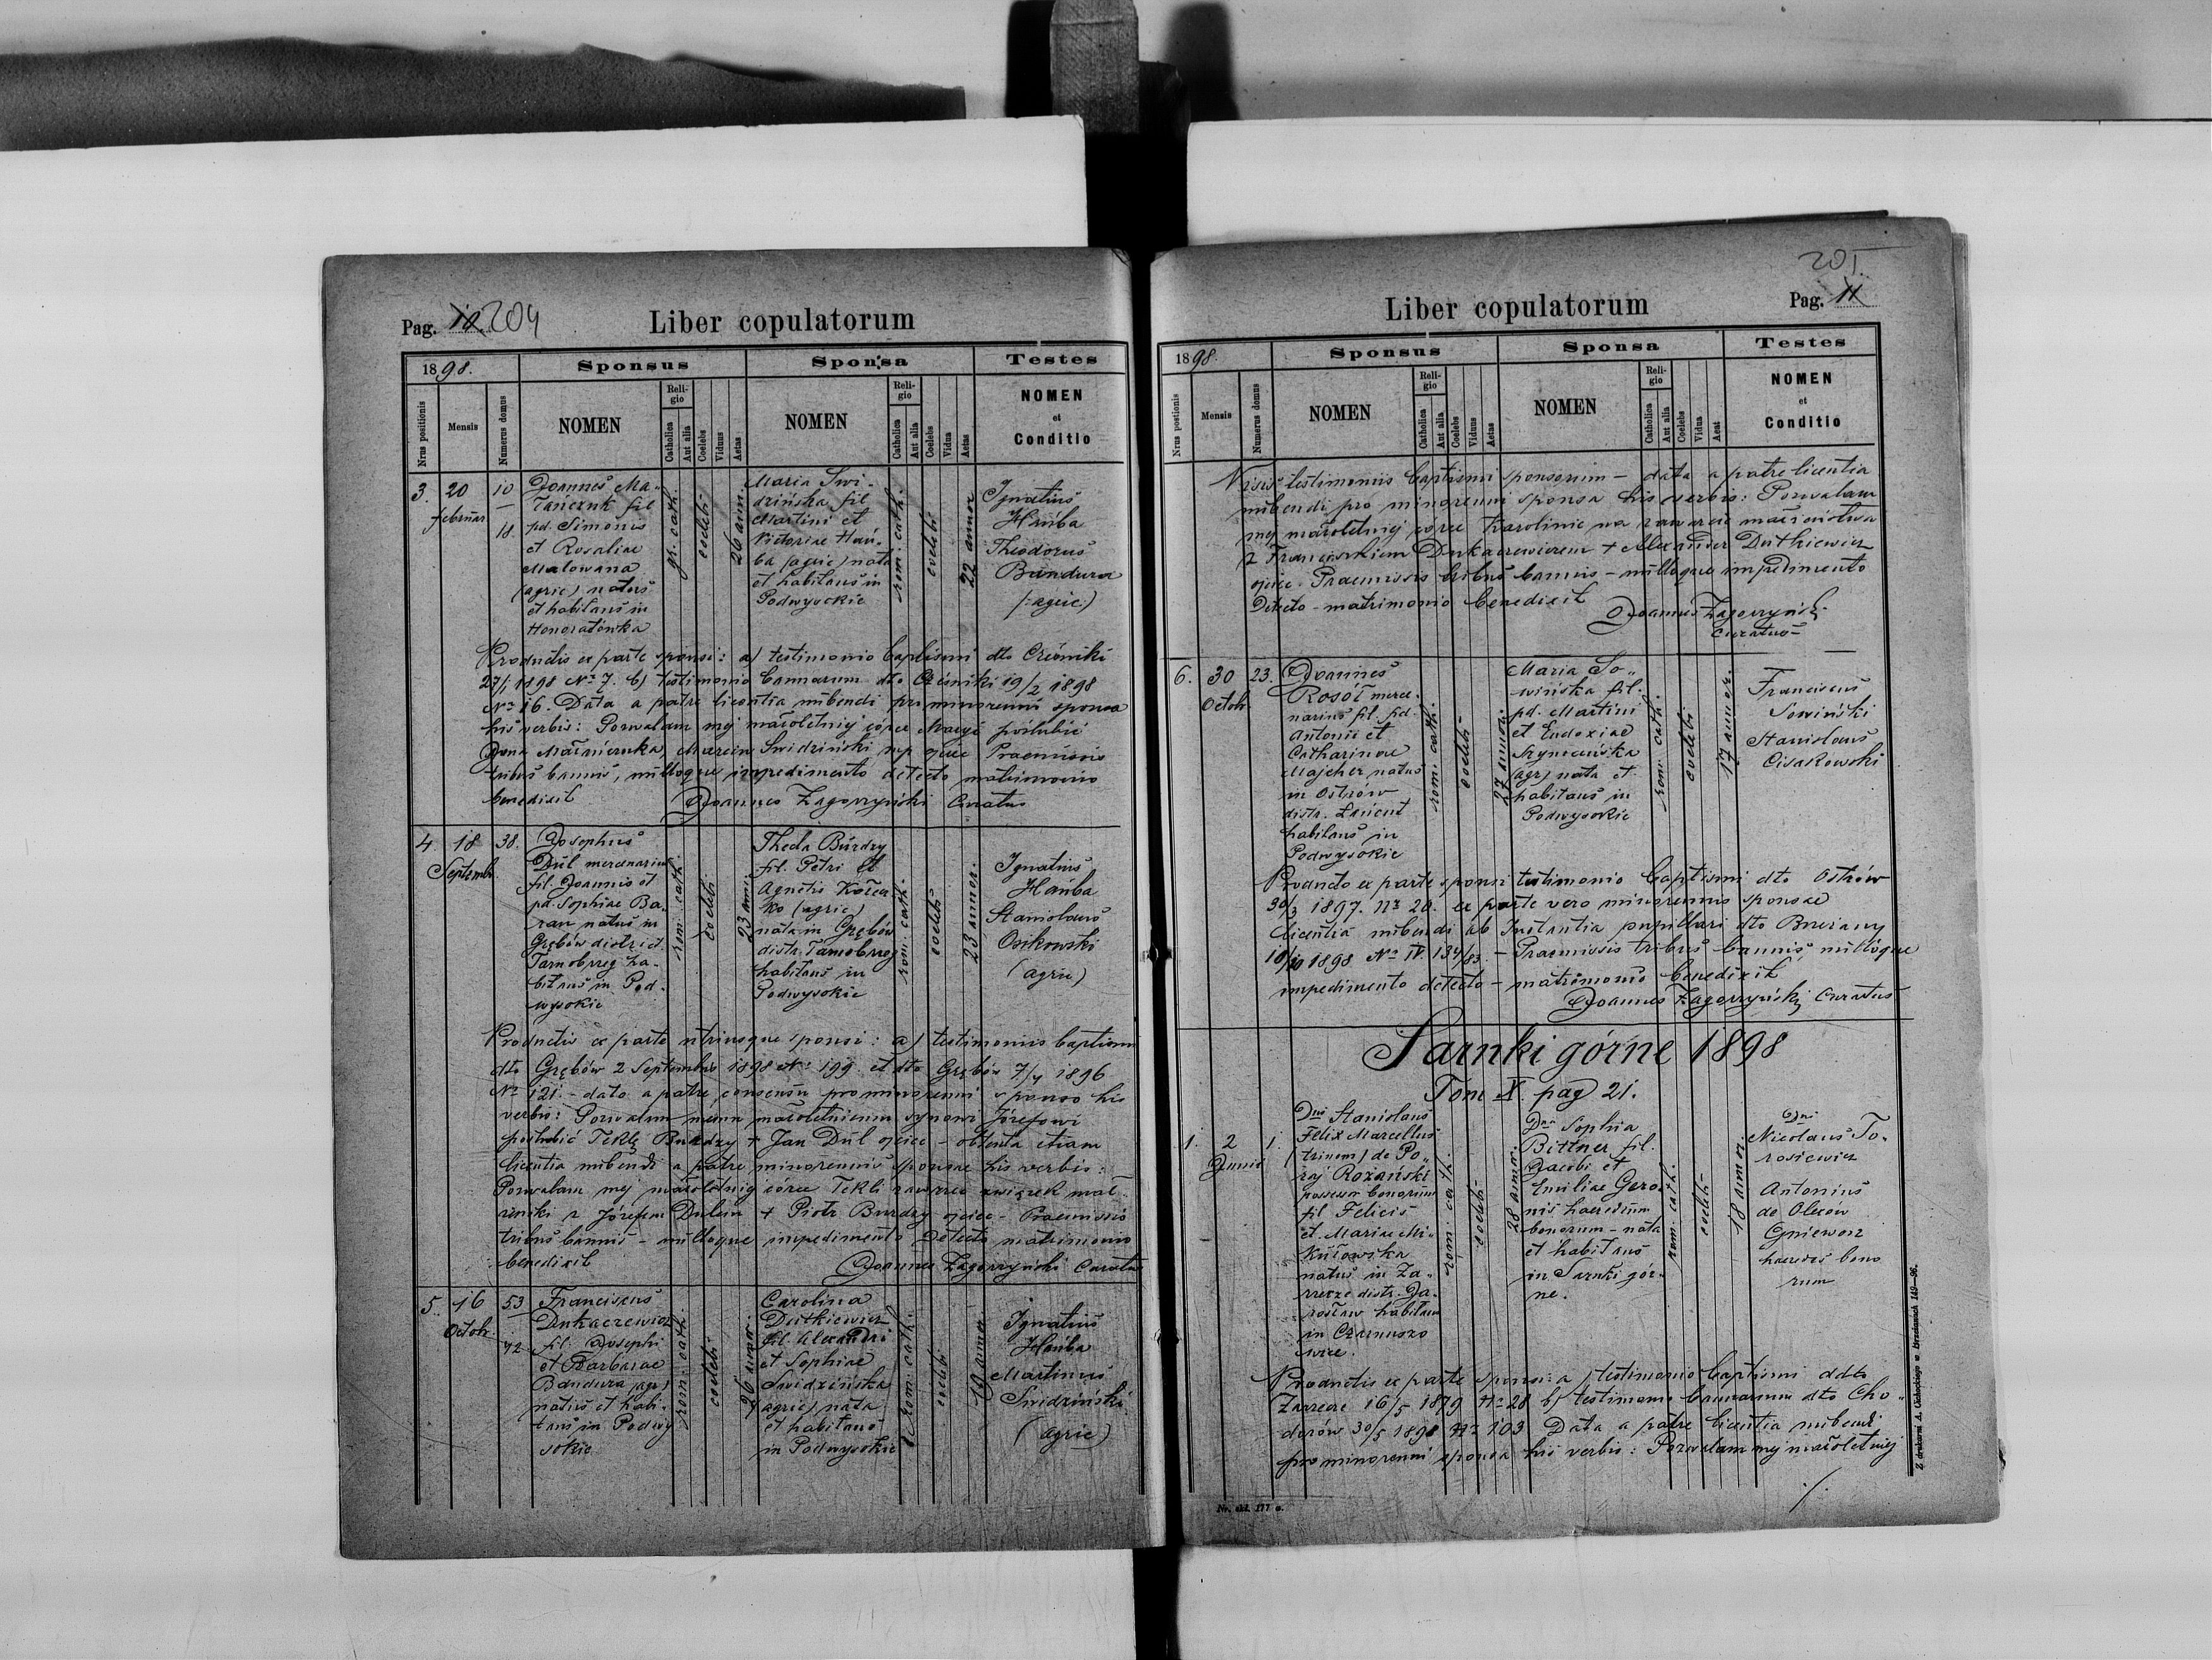 Pag. 10. 204
Liber copulatorum
1898.
Sponsus
Sponsa
Testes
Nrus positionis
Mensis
Numerus domus
NOMEN
Religio
Catholica
Aut alia
Coelebs
Viduus
Aetas
NOMEN
Religio
Catholica
Aut alia
Coelebs
Vidua
Aetas
NOMEN
et
Conditio
3.
20
februar
10
—
18
Joannes Ma-
fil
pd. Simonis
et Rosaliae
Malowana
(agric) natus
et habitans in
Honoratówka
gr. cath.
coelebs
26 ann
Maria Swi-
drińska fil
Martini et
Victoriae Hań-
ba (agric) nata
et habitans in
Podwysokie
rom. cath.
coelebs
22 annor
Ignatius
Hańba
Theodorus
Bandura
(:agric:)
Productis ex parte sponsi: a) testimonio baptismi dto
27/1 1898 Nr 7. b) testimonio bannorum dto 19/2 1898
Nr 16. Data a patre licentia nubendi pro minorenni sponsa
his verbis: Pozwalam mej małoletniej córce Maryi poślubić
Marcin Swidziński mp ojciec Praemissis
tribus bannis, nulloque impedimento detecto matrimonio
benedixit Joannes Zagorzyński Curatus
4.
18
Septemb.
38.
Josephus
Dul mercenarius
fil. Joannis et
pd. Sophiae Ba-
ran natus in
Grębów district.
Tarnobrzeg ha-
bitans in Pod-
wysokie
rom. cath.
coelebs
23 ann.
Thecla Burdzy
fil. Petri et
Agnetis
ko (agric)
nata in Grębów
distr. Tarnobrzeg
habitans in
Podwysokie
rom. cath.
coelebs
23 annor.
Ignatius
Hańba
Stanislaus
Osikowski
(agric)
Productis ex parte utriusque sponsi: a) testimoniis baptismi
dto Grębów 2 Septembris 1898 Nr 199 et dto Grębów 7/4 1896
Nr 121. – dato a patre consensu pro minorenni sponso his
verbis: Pozwalam memu małoletniemu synowi Józefowi
poślubić Teklę Burdzy + Jan Dul ojciec – obtenta etiam
licentia nubendi a patre minorennis sponsae his verbis:
Pozwalam mej małoletniej córce Tekli zawrzec związek mał-
żenski z Józefem Dulem + Piotr Burdzy ojciec – Praemissis
tribus bannis – nulloque impedimento detecto matrimonio
benedixit Joannes Zagorzyński Curatus
5.
16
Octob.
53
72
Franciscus
Dukaczewicz
fil. Josephi
et Barbarae
Bandura (agr)
natus et habi-
tans in Podwy
sokie
rom. cath.
coelebs
26 annor.
Carolina
Dutkiewicz
fil. Alexandri
et Sophiae
Swidzińska
(agric) nata
et habitans
in Podwysokie
rom. cath.
coelebs
19 annor
Ignatius
Hańba
Martinus
Swidziński
(agric)
201.
Liber copulatorum
Pag. 11
1898.
Sponsus
Sponsa
Testes
Nrus postionis
Mensis
Numerus domus
NOMEN
Religio
Catholica
Aut alia
Coelebs
Viduus
Aetas
NOMEN
Religio
Catholica
Aut alia
Coelebs
Vidua
Aeat
NOMEN
et
Conditio
Visis testimoniis baptismi sponsorum – data a patre licentia
nubendi pro minorenni sponsa his verbis: Pozwalam
mej małoletniej córce Karolinie na zawarcie małżeństwa
z Franciszkiem Dukaczewiczem + Alexander Dutkiewicz
ojciec. Praemissis tribus bannis – nulloque impedimento
detecto – matrimonio benedixit
Joannes Zagorzyński
curatus –
6.
30
Octob
23.
Joannes
Rosół merce-
narius fil. pd.
Antonii et
Catharinae
Majcher natus
in Ostrów
distr. Łańcut
habitans in
Podwysokie
rom. cath.
coelebs
27 annor.
Maria So-
wińska fil.
pd. Martini
et Eudoxiae
(agr) nata et
habitans in
Podwysokie
rom. cath.
coelebs
17 annor.
Franciscus
Sowiński
Stanislaus
Producto ex parte sponsi testimonio baptismi dto Ostrów
30/3 1897. Nr 20. ex parte vero minorennis sponsae
licentiâ nubendi ab Instantia pupillari dto Brzezany
10/10 1898 Nr IV. 134/83. – Praemissis tribus bannis, nulloque
impedimento detecto – matrimonio benedixit
Joannes Zagorzyński Curatus
Sarnki górne 1898
Tom X. pag 21.
1.
2
Junii
1.
Dnus Stanislaus
Felix Marcellus
(trinom) de Po-
raj Rożański
possessor bonorum
fil Felicis
et Mariae Mi-
kułowska
natus in Za-
rzecze distr. Ja-
rosław habitans
in Czarnuszo
wice.
rom. cath.
coelebs
28 annor.
Dna Sophia
Bittner fil.
Jacobi et
Emiliae Gero-
nis haeredum
bonorum – nata
et habitans
in Sarnki gór-
ne.
rom. cath.
coelebs
18 annor.
Dni
Nicolaus To-
rosiewicz
Antonius
de Olexow
Gniewosz
haeredes bono
rum
Productis ex parte sponsi: a) testimonio baptismi ddto
Zarzecze 16/5 1879 Nr 28 b) testimonio bannorum dto Cho-
dorów 30/5 1898 Nr 103 Data a patre licentia nubendi
pro minorenni sponsa his verbis: Pozwalam mej małoletniej
./.
Nr. skł. 177 a.
Z drukarni A. Cichockiego w Brzeżanach 149—96.